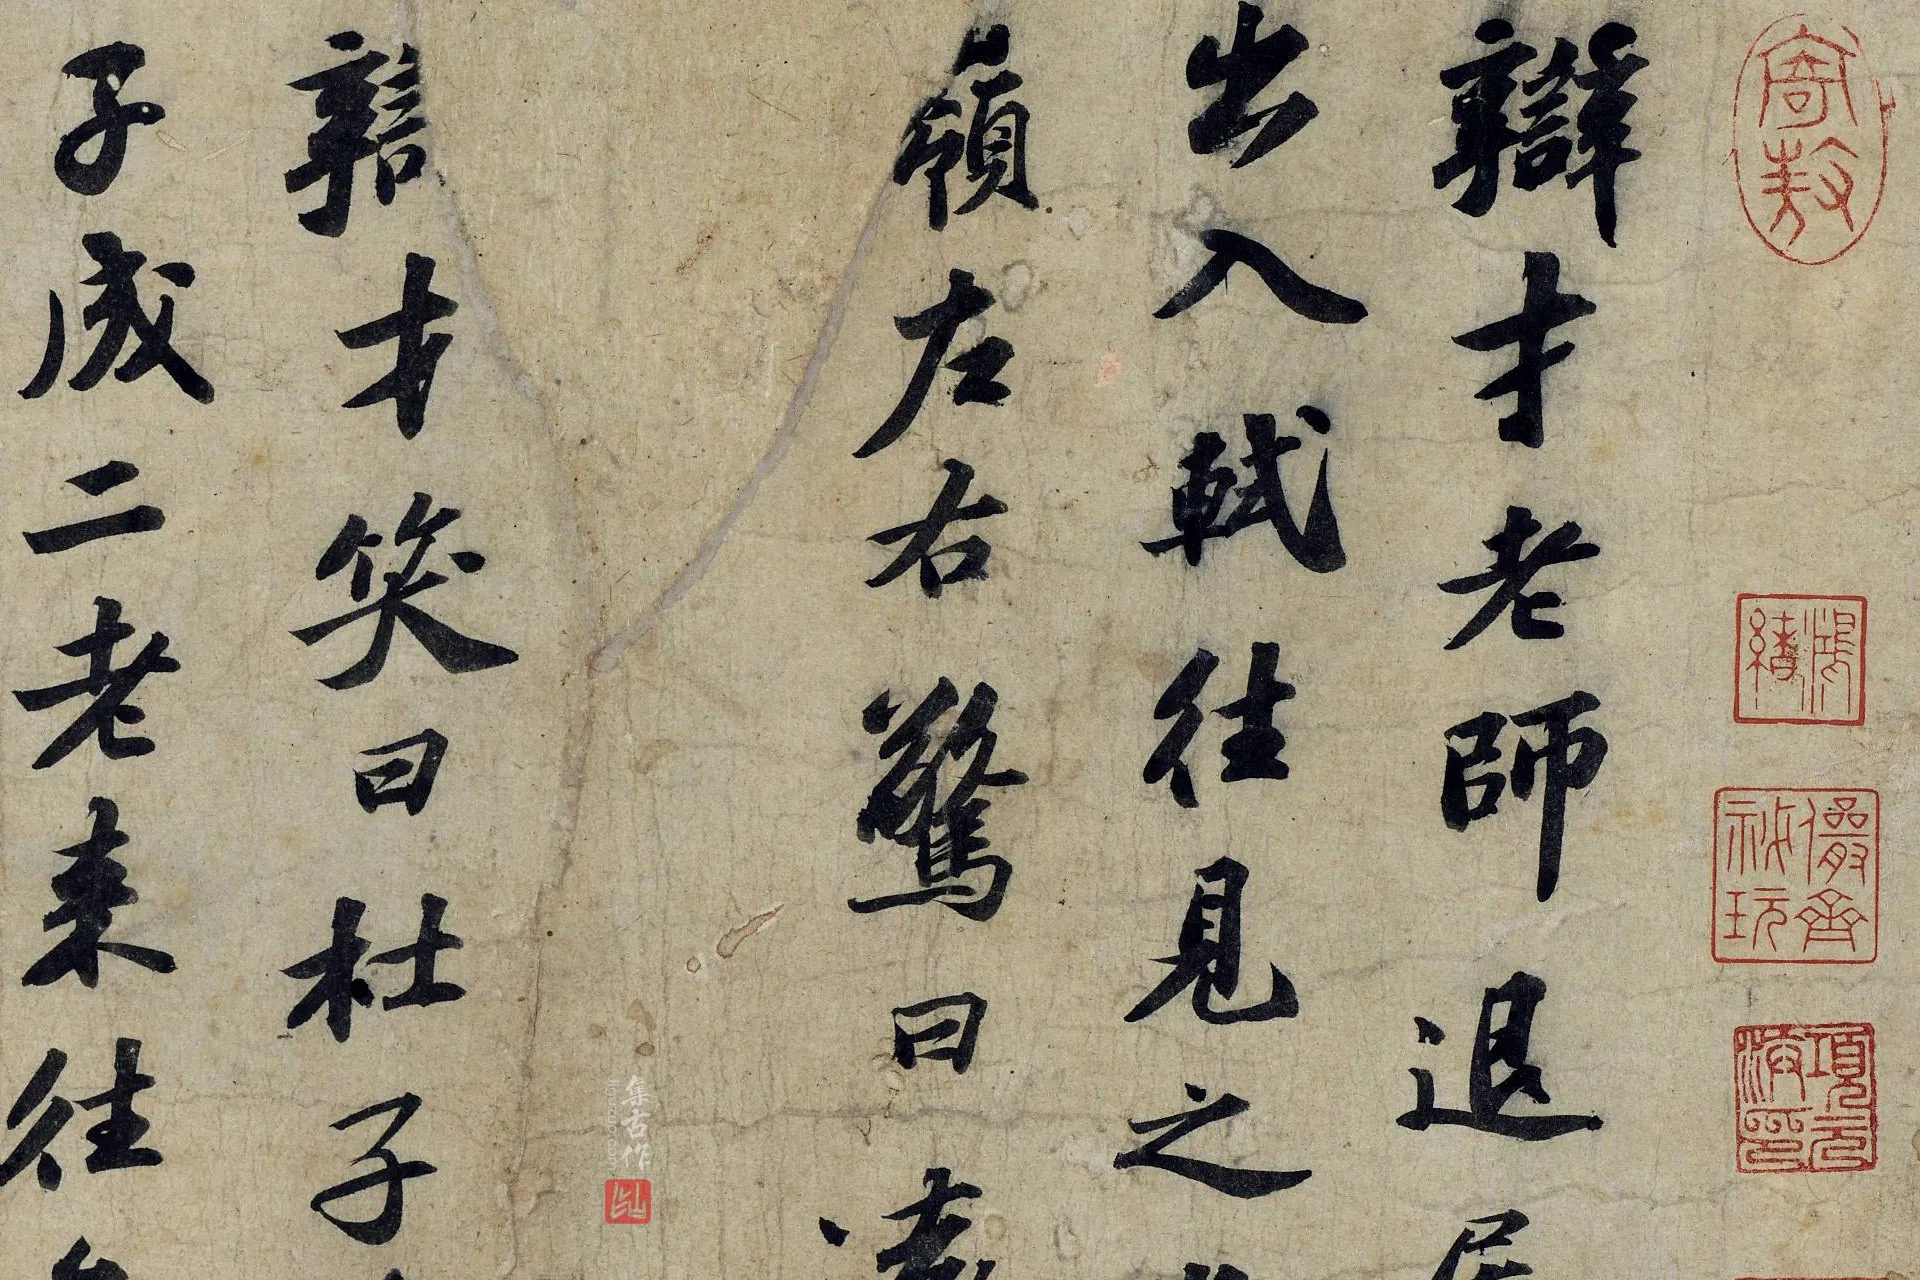 辯才老師退居
出入軾往見之
嶺左右驚曰遠
辯才笑曰杜子
子成二老来往
寄敖
鴻緒
儼齋秘玩
項元汴印
集古作